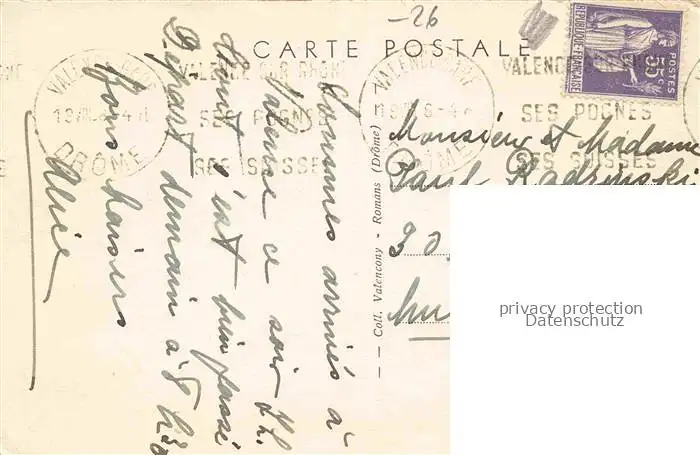 -26
CARTE POSTALE
POSTES
55c
REPUBLIQUE FRANÇAISE
VALENCE SUR RHONE
SES POGNES
SES SUISSES
VALENCE
DRÔME
VALENCE SUR RHONE
SES POGNES
SES SUISSES
Sommes arrivés à
Valence ce soir 7h.
tout s'est bien passé
Départ demain à 8h30
Bons baisers
Alice
Coll. Valencony - Romans (Drôme)
Monsieur et Madame
Paul Radzinski
30,
privacy protection
Datenschutz